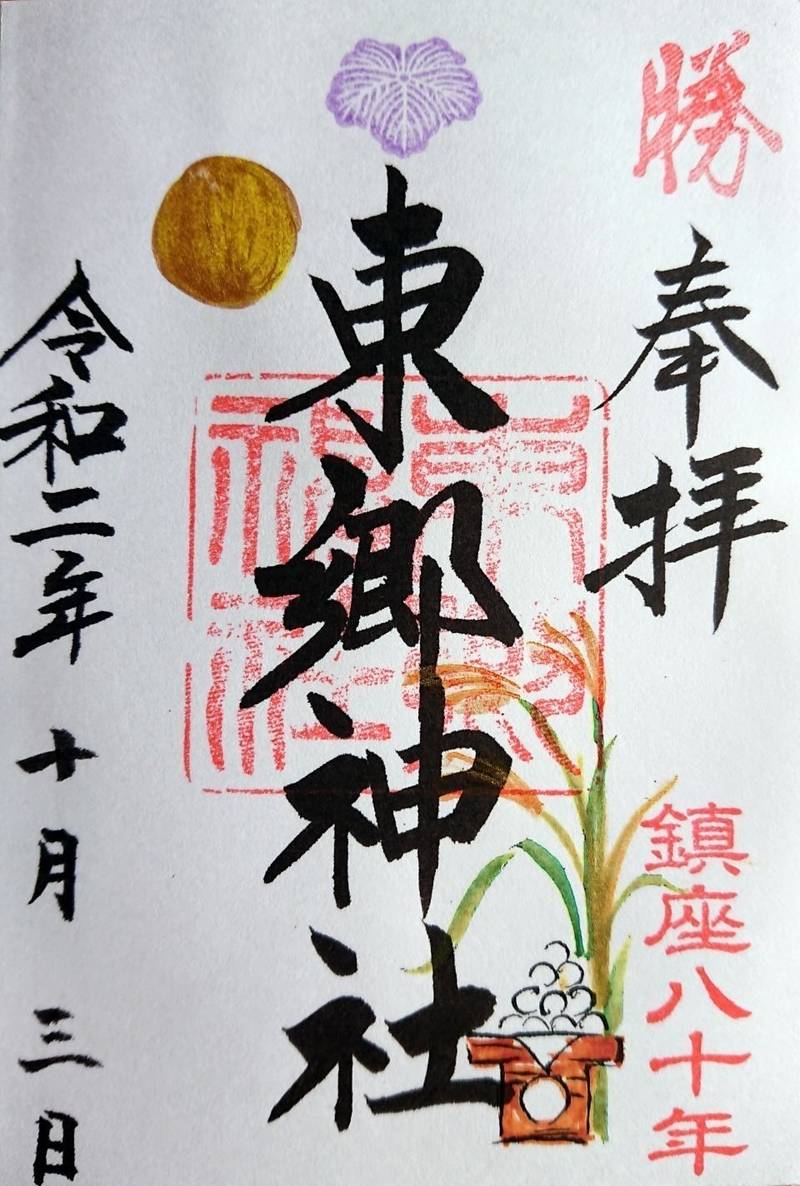 勝
奉拝
鎮座八十年
東郷神社
東郷神社
令和二年 十月 三日